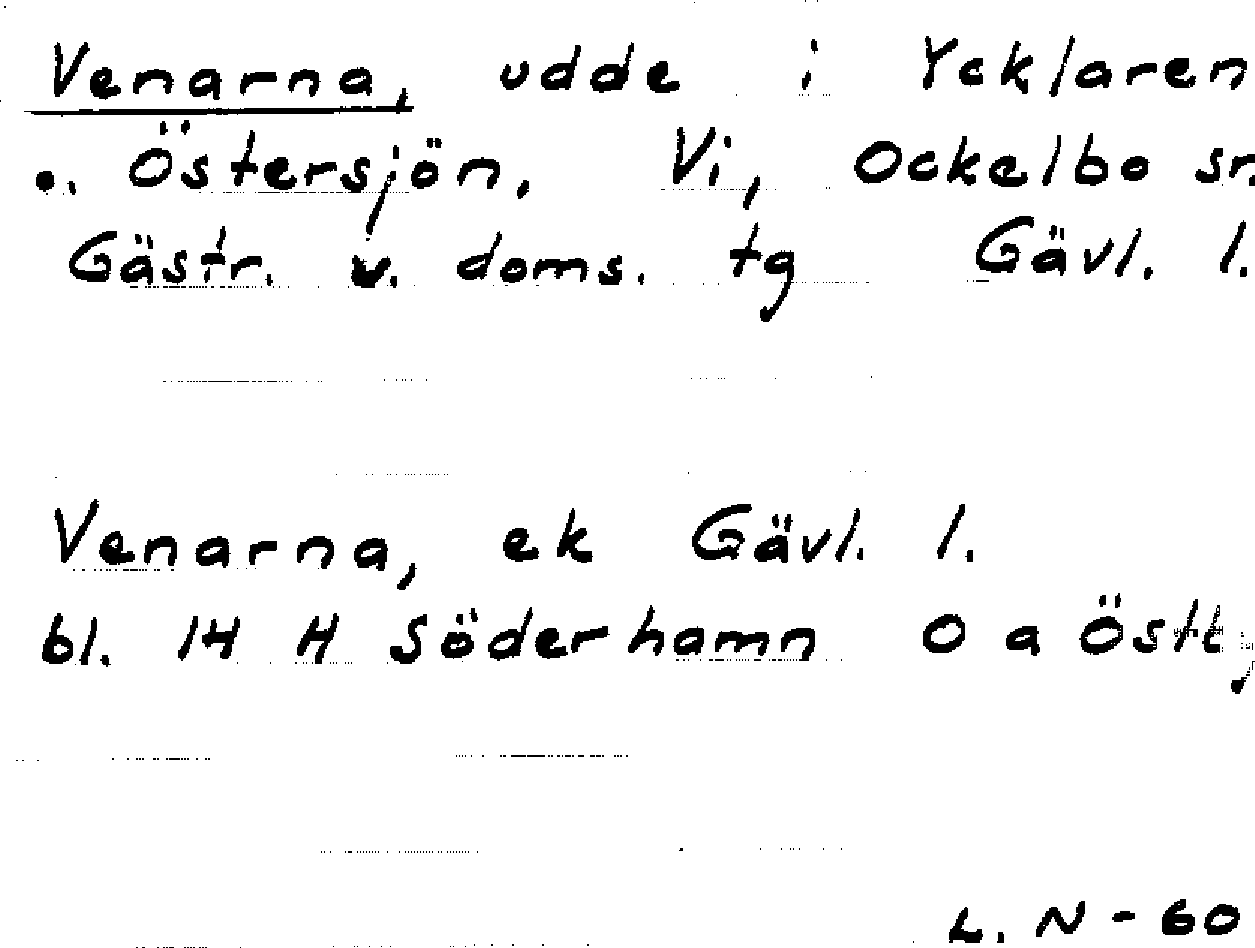 Venarna, udde i Ycklaren
o. Östersjön, Vi, Ockelbo sn.
Gästr. v. doms. tg Gävl. l.
Venarna, ek Gävl. l.
bl. 14 H Söderhamn O a
L. N - 60